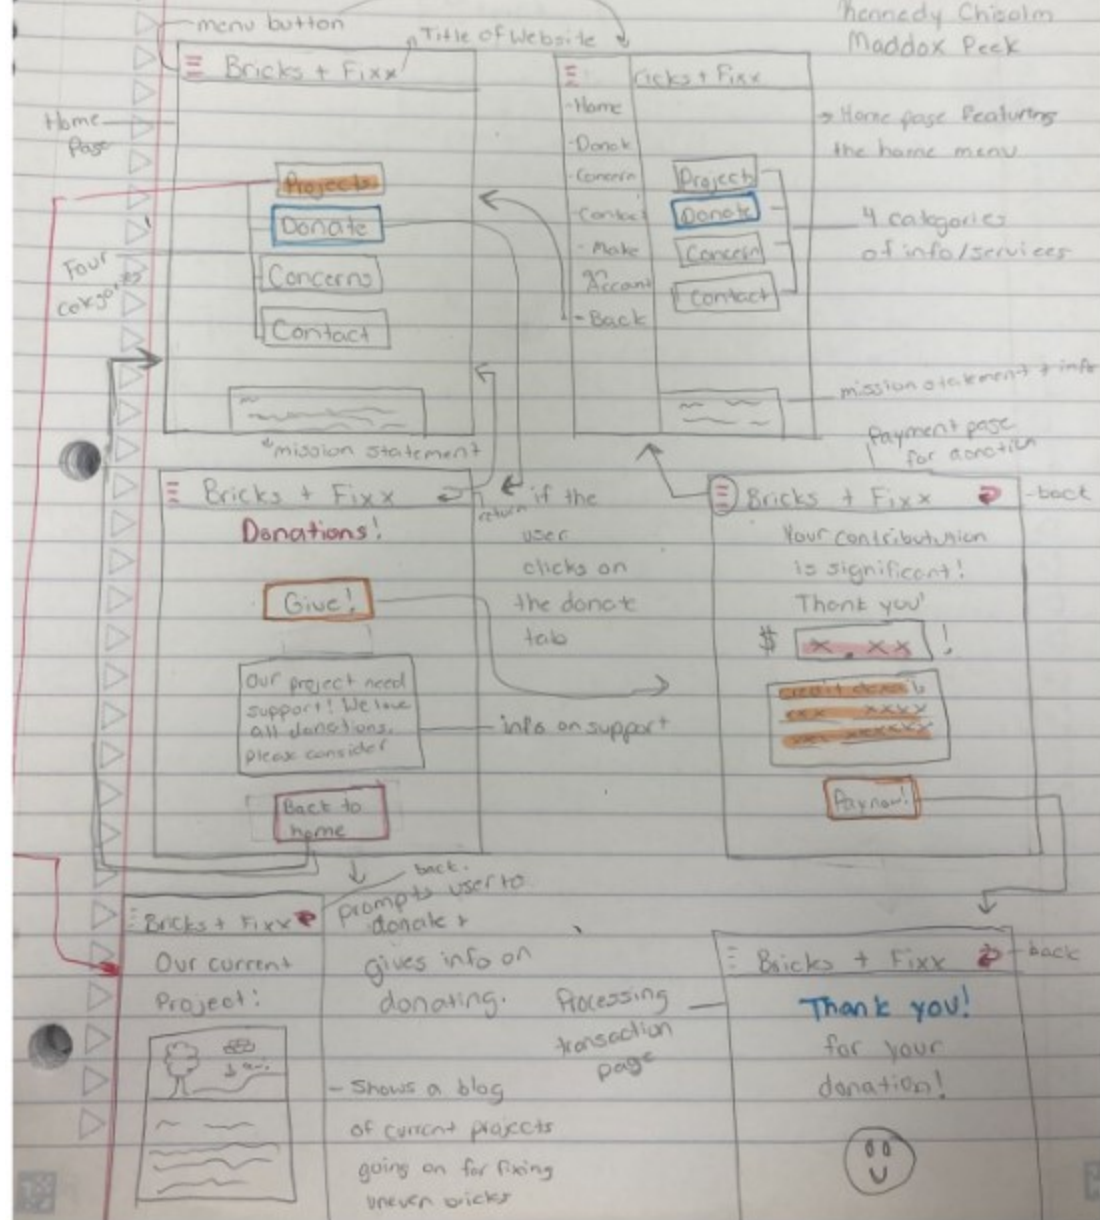 menu button
Title of Website
Kennedy Chisolm
Maddox Peek
Bricks + Fixx
ricks + Fixx
Home
Page
Projects
Donate
Concerns
Contact
Four
- Home
- Donate
- Concern
- Contact
- Make
Account
- Back
Projects
Donate
Concern
Contact
Home page featuring
the home menu
4 categories
of info/services
mission statement + info
mission statement
Payment page
for donation
Bricks + Fixx
return
Donations!
Give!
Our project need
support! We love
all donations.
please consider
Back to
home
if the
user
clicks on
the donate
tab
info on support
Bricks + Fixx
- back
Your contributunion
is significant!
Thank you!
$ x . xx !
credit details
xxx xxxx
xxx xxxxxx
Pay now!
back.
prompts user to
donate +
gives info on
donating.
Bricks + Fixx
Our current
Project:
- Shows a blog
of current projects
going on for fixing
uneven bricks
Processing
transaction
page
Bricks + Fixx
back
Thank you!
for your
donation!